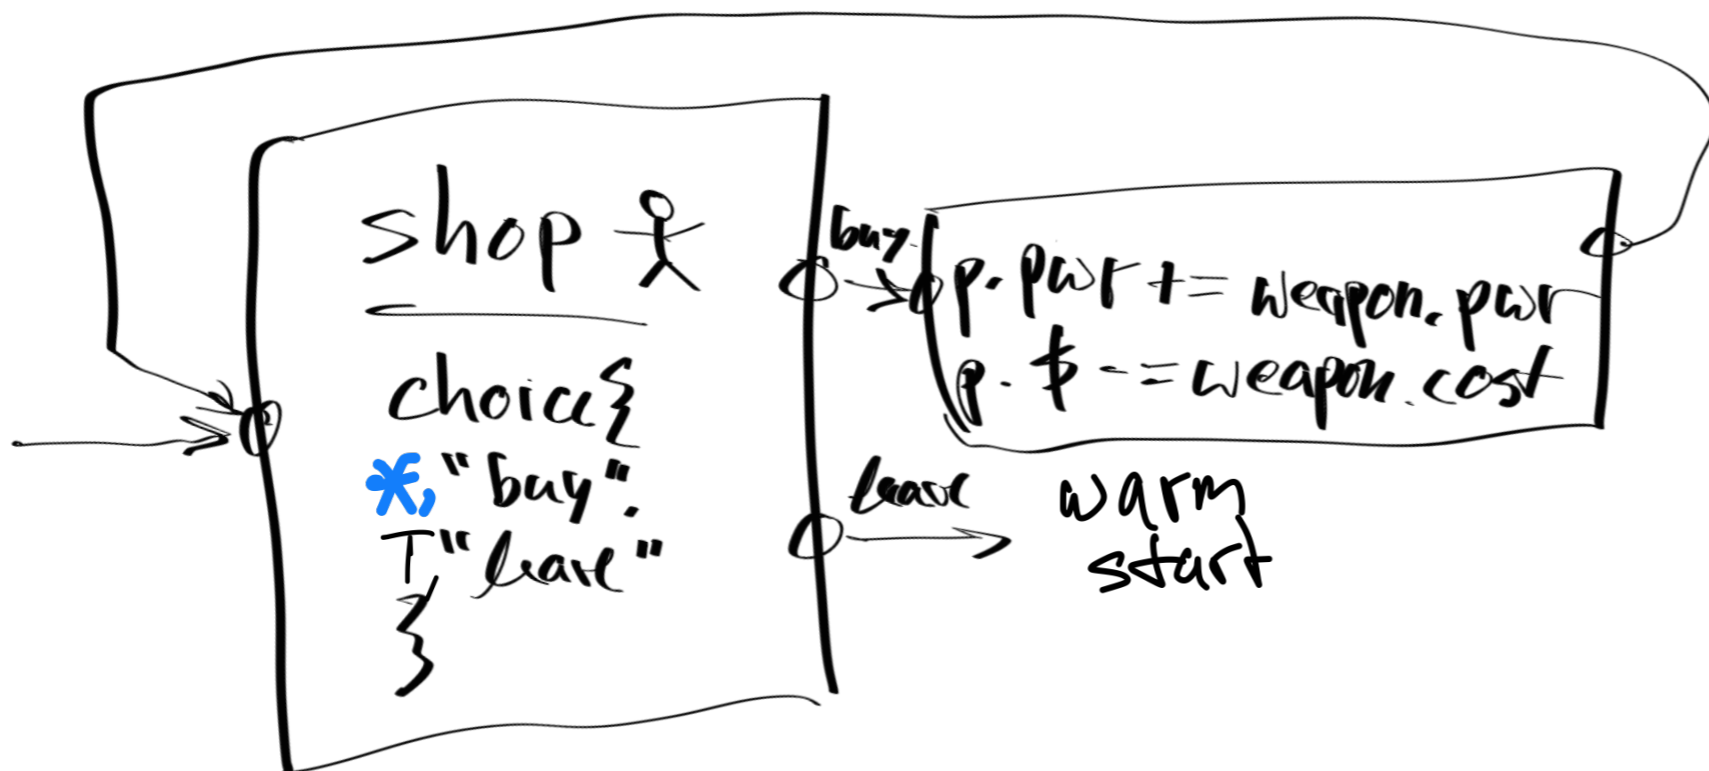 shop
choice{
*, "buy".
T, "leave"
}
buy
p. pwr += weapon. pwr
p. $ -= weapon. cost
leave
warm
start